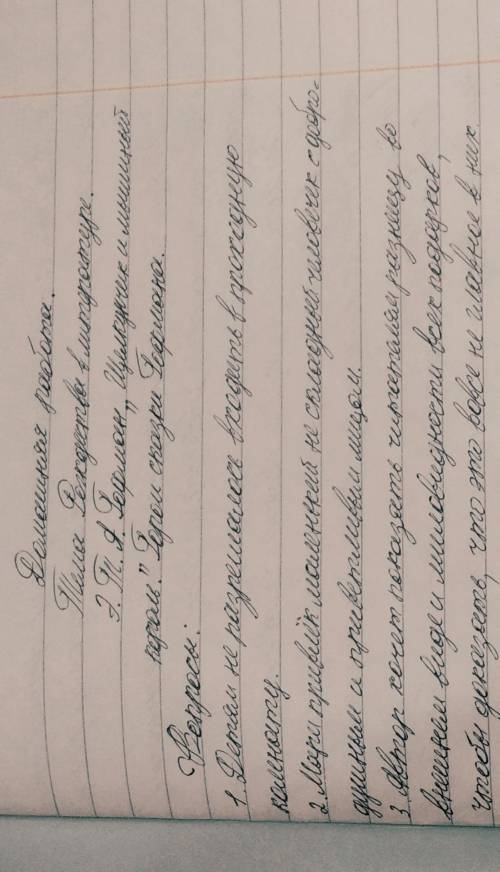 Домашняя работа.
Тема Рождества в литературе.
Э. Т. А. Гофман „Щелкунчик и мышиный
король." Герои сказки Гофмана.
Вопросы:
1. Детям не разрешалось входить в проходную
комнату.
2. Мари привлёк маленький не складный человечик с добро-
душным и приветливым лицом.
3. Автор хочет показать читателям разницу во
внешнем виде и миловидности всех подарков,
чтобы доказать, что это вовсе не главное в них